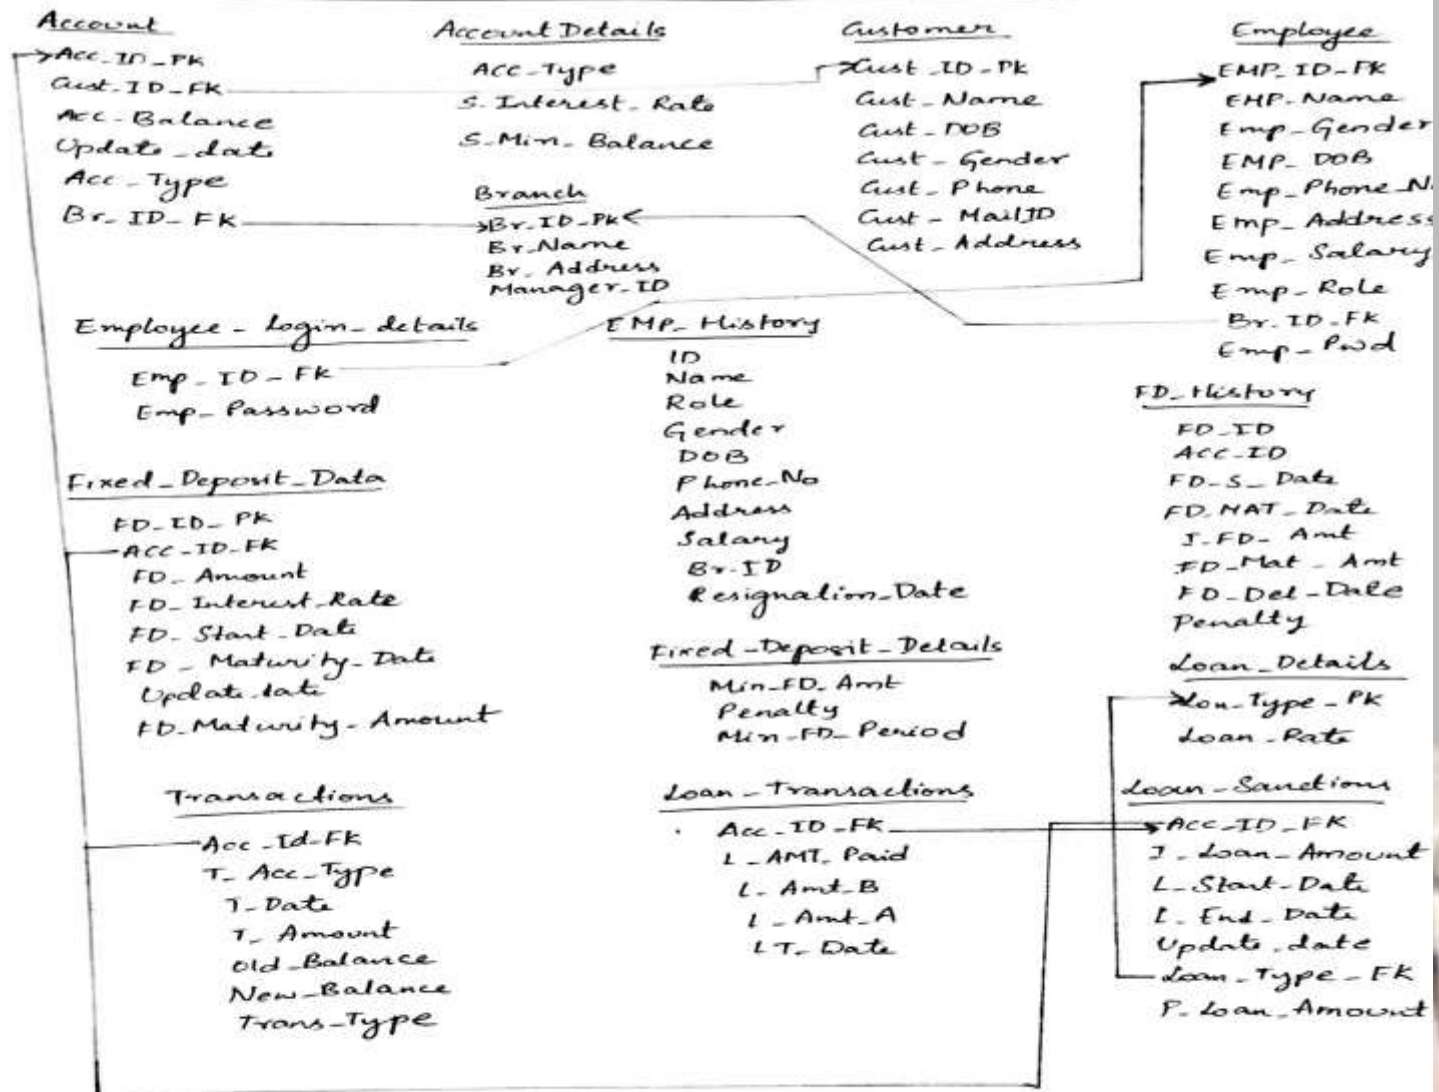 Account
Acc_ID_PK
Cust_ID_FK
Acc_Balance
Update_date
Acc_Type
Br_ID_FK
Account Details
Acc_Type
S_Interest_Rate
S_Min_Balance
Branch
Br_ID_PK
Br_Name
Br_Address
Manager_ID
Customer
Cust_ID_PK
Cust_Name
Cust_DOB
Cust_Gender
Cust_Phone
Cust_MailID
Cust_Address
Employee
EMP_ID_PK
EMP_Name
Emp_Gender
EMP_DOB
Emp_Phone_N
Emp_Address
Emp_Salary
Emp_Role
Br_ID_FK
Emp_Pwd
Employee_Login_details
Emp_ID_FK
Emp_Password
EMP_History
ID
Name
Role
Gender
DOB
Phone_No
Address
Salary
Br_ID
Resignation_Date
FD_History
FD_ID
Acc_ID
FD_S_Date
FD_MAT_Date
I_FD_Amt
FD_Mat_Amt
FD_Del_Date
Penalty
Fixed_Deposit_Data
FD_ID_PK
Acc_ID_FK
FD_Amount
FD_Interest_Rate
FD_Start_Date
FD_Maturity_Date
Update_date
FD_Maturity_Amount
Fixed_Deposit_Details
Min_FD_Amt
Penalty
Min_FD_Period
Loan_Details
Lon_Type_PK
Loan_Rate
Transactions
Acc_Id_FK
T_Acc_Type
T_Date
T_Amount
Old_Balance
New_Balance
Trans_Type
Loan_Transactions
Acc_ID_FK
L_AMT_Paid
L_Amt_B
L_Amt_A
LT_Date
Loan_Sanctions
Acc_ID_FK
I_Loan_Amount
L_Start_Date
L_End_Date
Update_date
Loan_Type_FK
P_Loan_Amount